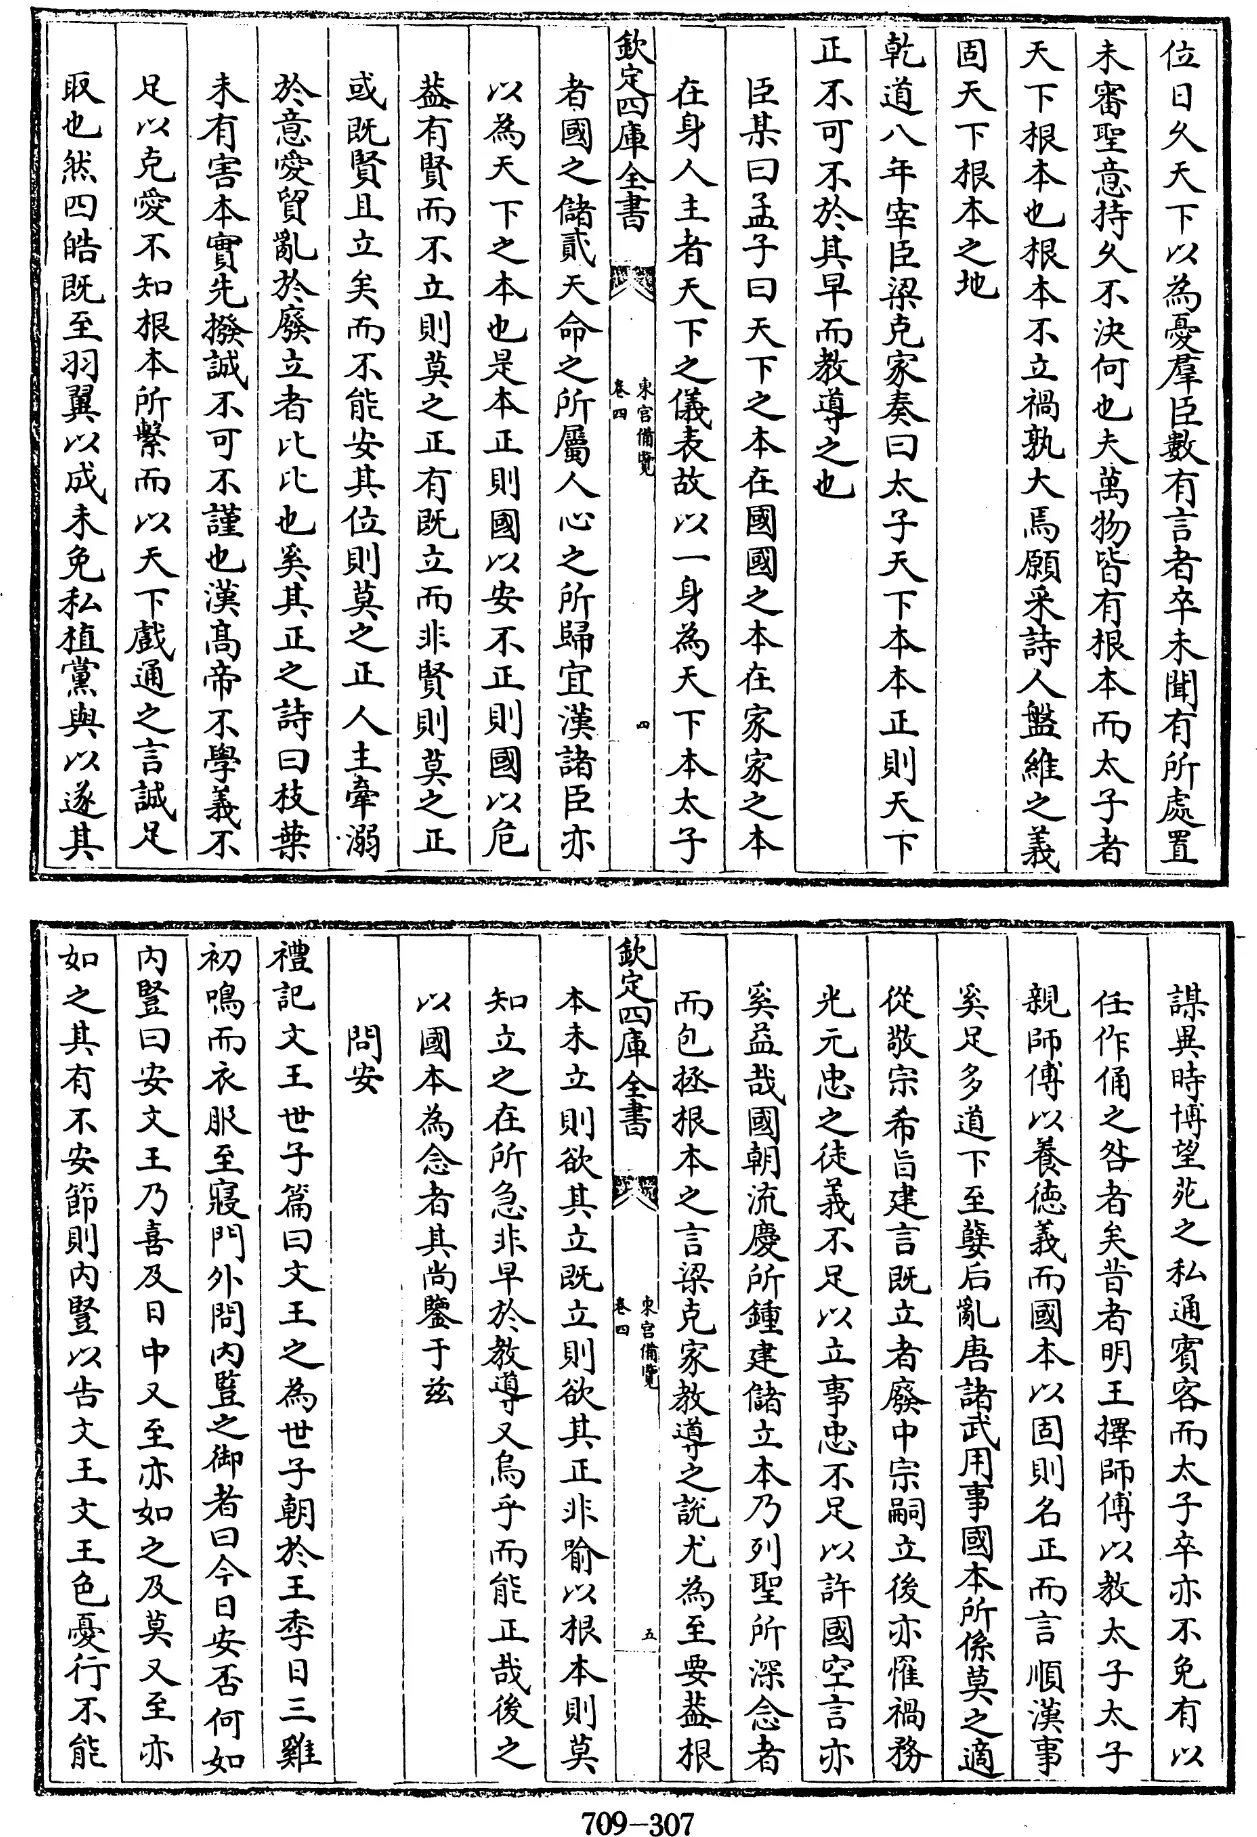 位日久天下以為憂羣臣數有言者卒未聞有所處置
未審聖意持久不決何也夫萬物皆有根本而太子者
天下根本也根本不立禍孰大焉願采詩人盤維之義
固天下根本之地
乾道八年宰臣梁克家奏曰太子天下本本正則天下
正不可不於其早而教導之也
臣某曰孟子曰天下之本在國國之本在家家之本
在身人主者天下之儀表故以一身為天下本太子
欽定四庫全書
東宮備覽
卷四
四
者國之儲貳天命之所屬人心之所歸宜漢諸臣亦
以為天下之本也是本正則國以安不正則國以危
葢有賢而不立則莫之正有既立而非賢則莫之正
或既賢且立矣而不能安其位則莫之正人主牽溺
於意愛貿亂於廢立者比比也奚其正之詩曰枝葉
未有害本實先撥誠不可不謹也漢高帝不學義不
足以克愛不知根本所繫而以天下戲通之言誠足
取也然四皓既至羽翼以成未免私植黨與以遂其
謀異時博望苑之私通賓客而太子卒亦不免有以
任作俑之咎者矣昔者明王擇師傅以教太子太子
親師傅以養徳義而國本以固則名正而言順漢事
奚足多道下至嬖后亂唐諸武用事國本所係莫之適
從敬宗希旨建言既立者廢中宗嗣立後亦懼禍務
光元忠之徒義不足以立事忠不足以許國空言亦
奚益哉國朝流慶所鍾建儲立本乃列聖所深念者
而包拯根本之言梁克家教導之說尤為至要葢根
欽定四庫全書
東宮備覽
卷四
五
本未立則欲其立既立則欲其正非喻以根本則莫
知立之在所急非早於教導又烏乎而能正哉後之
以國本為念者其尚鑒于兹
問安
禮記文王世子篇曰文王之為世子朝於王季日三雞
初鳴而衣服至寢門外問内豎之御者曰今日安否何如
内豎曰安文王乃喜及日中又至亦如之及莫又至亦
如之其有不安節則内豎以告文王文王色憂行不能
709-307